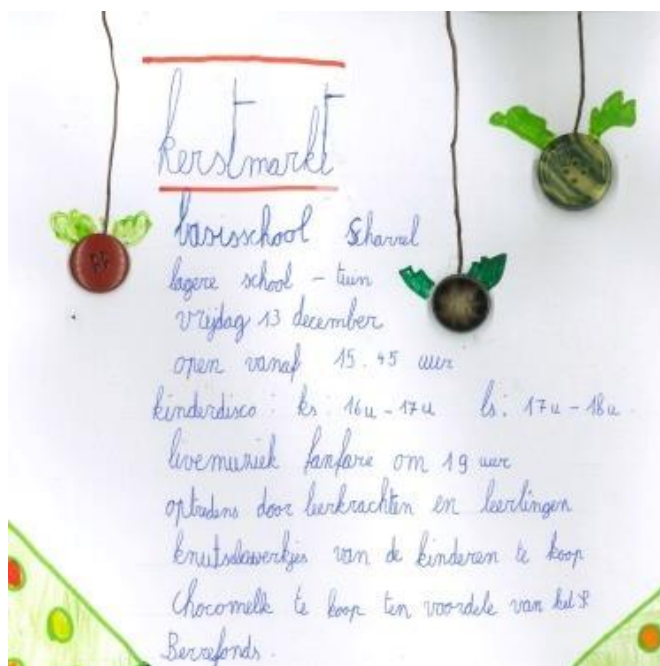 kerstmarkt
basisschool Scharrel
lagere school - tuin
vrijdag 13 december
open vanaf 15.45 uur
kinderdisco: ks: 16u - 17u ls: 17u - 18u
livemuziek fanfare om 19 uur
optredens door leerkrachten en leerlingen
knutselwerkjes van de kinderen te koop
chocomelk te koop ten voordele van het
Berrefonds.